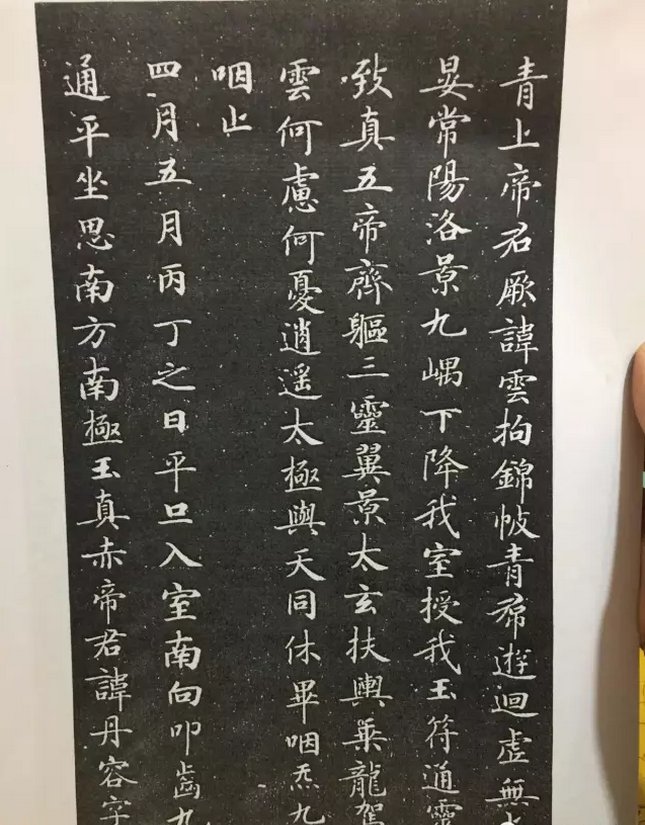 青上帝君厥諱雲拘錦帔青帬遊迴虛無
晏常陽洛景九嵎下降我室授我玉符通靈
致真五帝齊軀三靈翼景太玄扶輿乘龍駕
雲何慮何憂逍遙太極與天同休畢咽炁九
咽止
四月五月丙丁之日平旦入室南向叩齒九
通平坐思南方南極玉真赤帝君諱丹容字